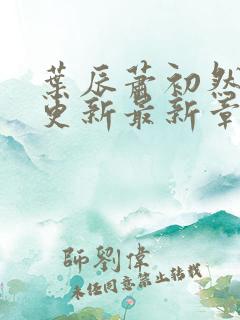 葉辰蕭初然
更新最新章
師劉偉
未經同意禁止轉載